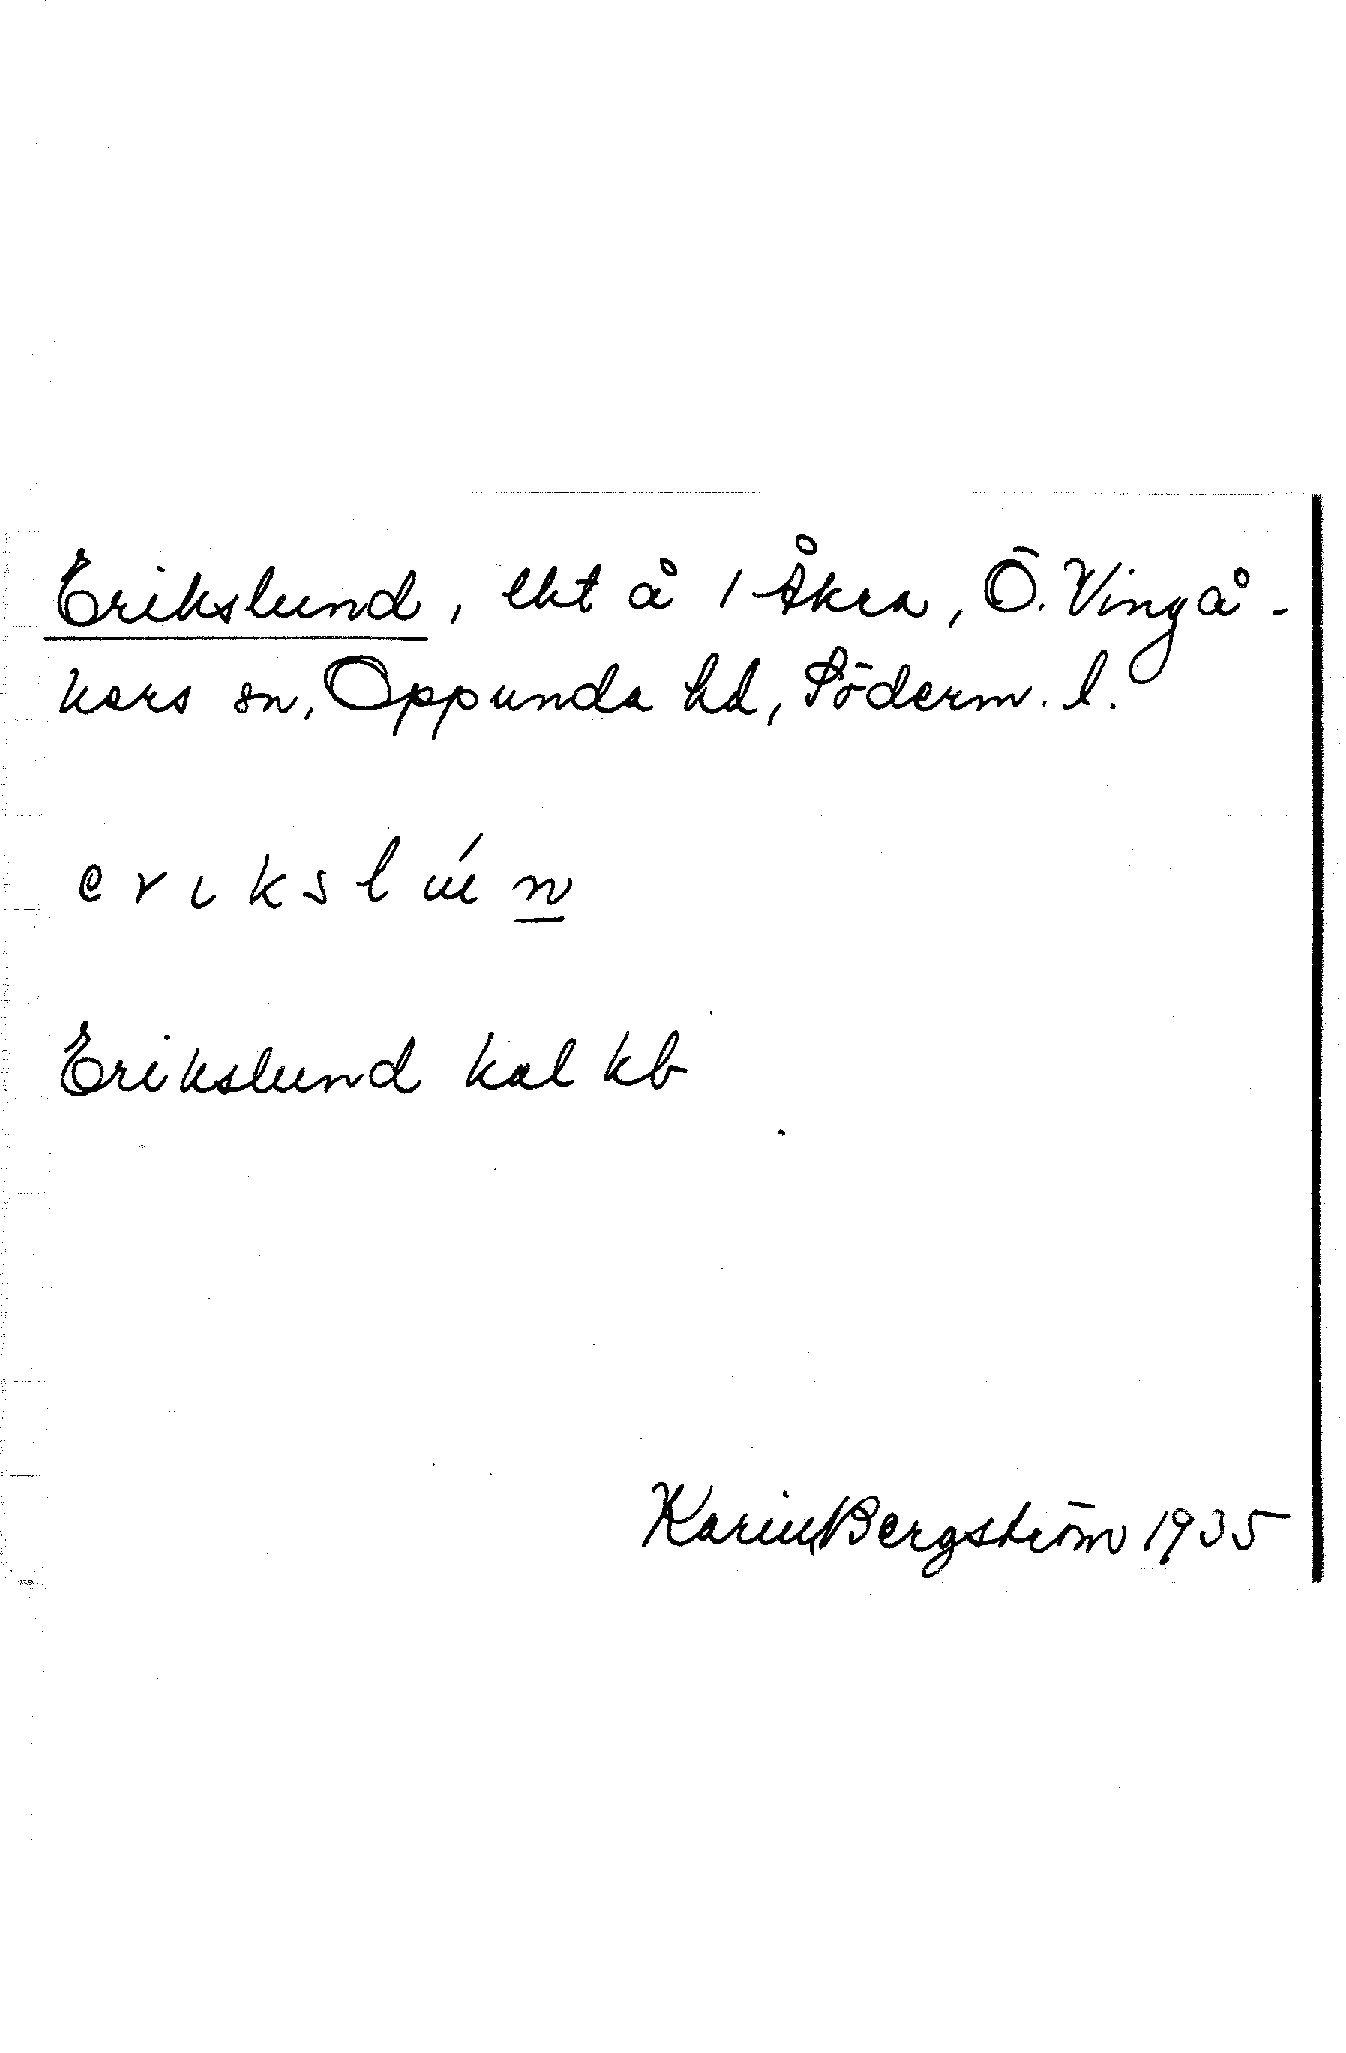 Erikslund, lht å 1 Åkra, Ö. Vingå-
kers sn, Oppunda hd, Söderm. l.
erikslún
Erikslund kal kb
Karin Bergström 1935